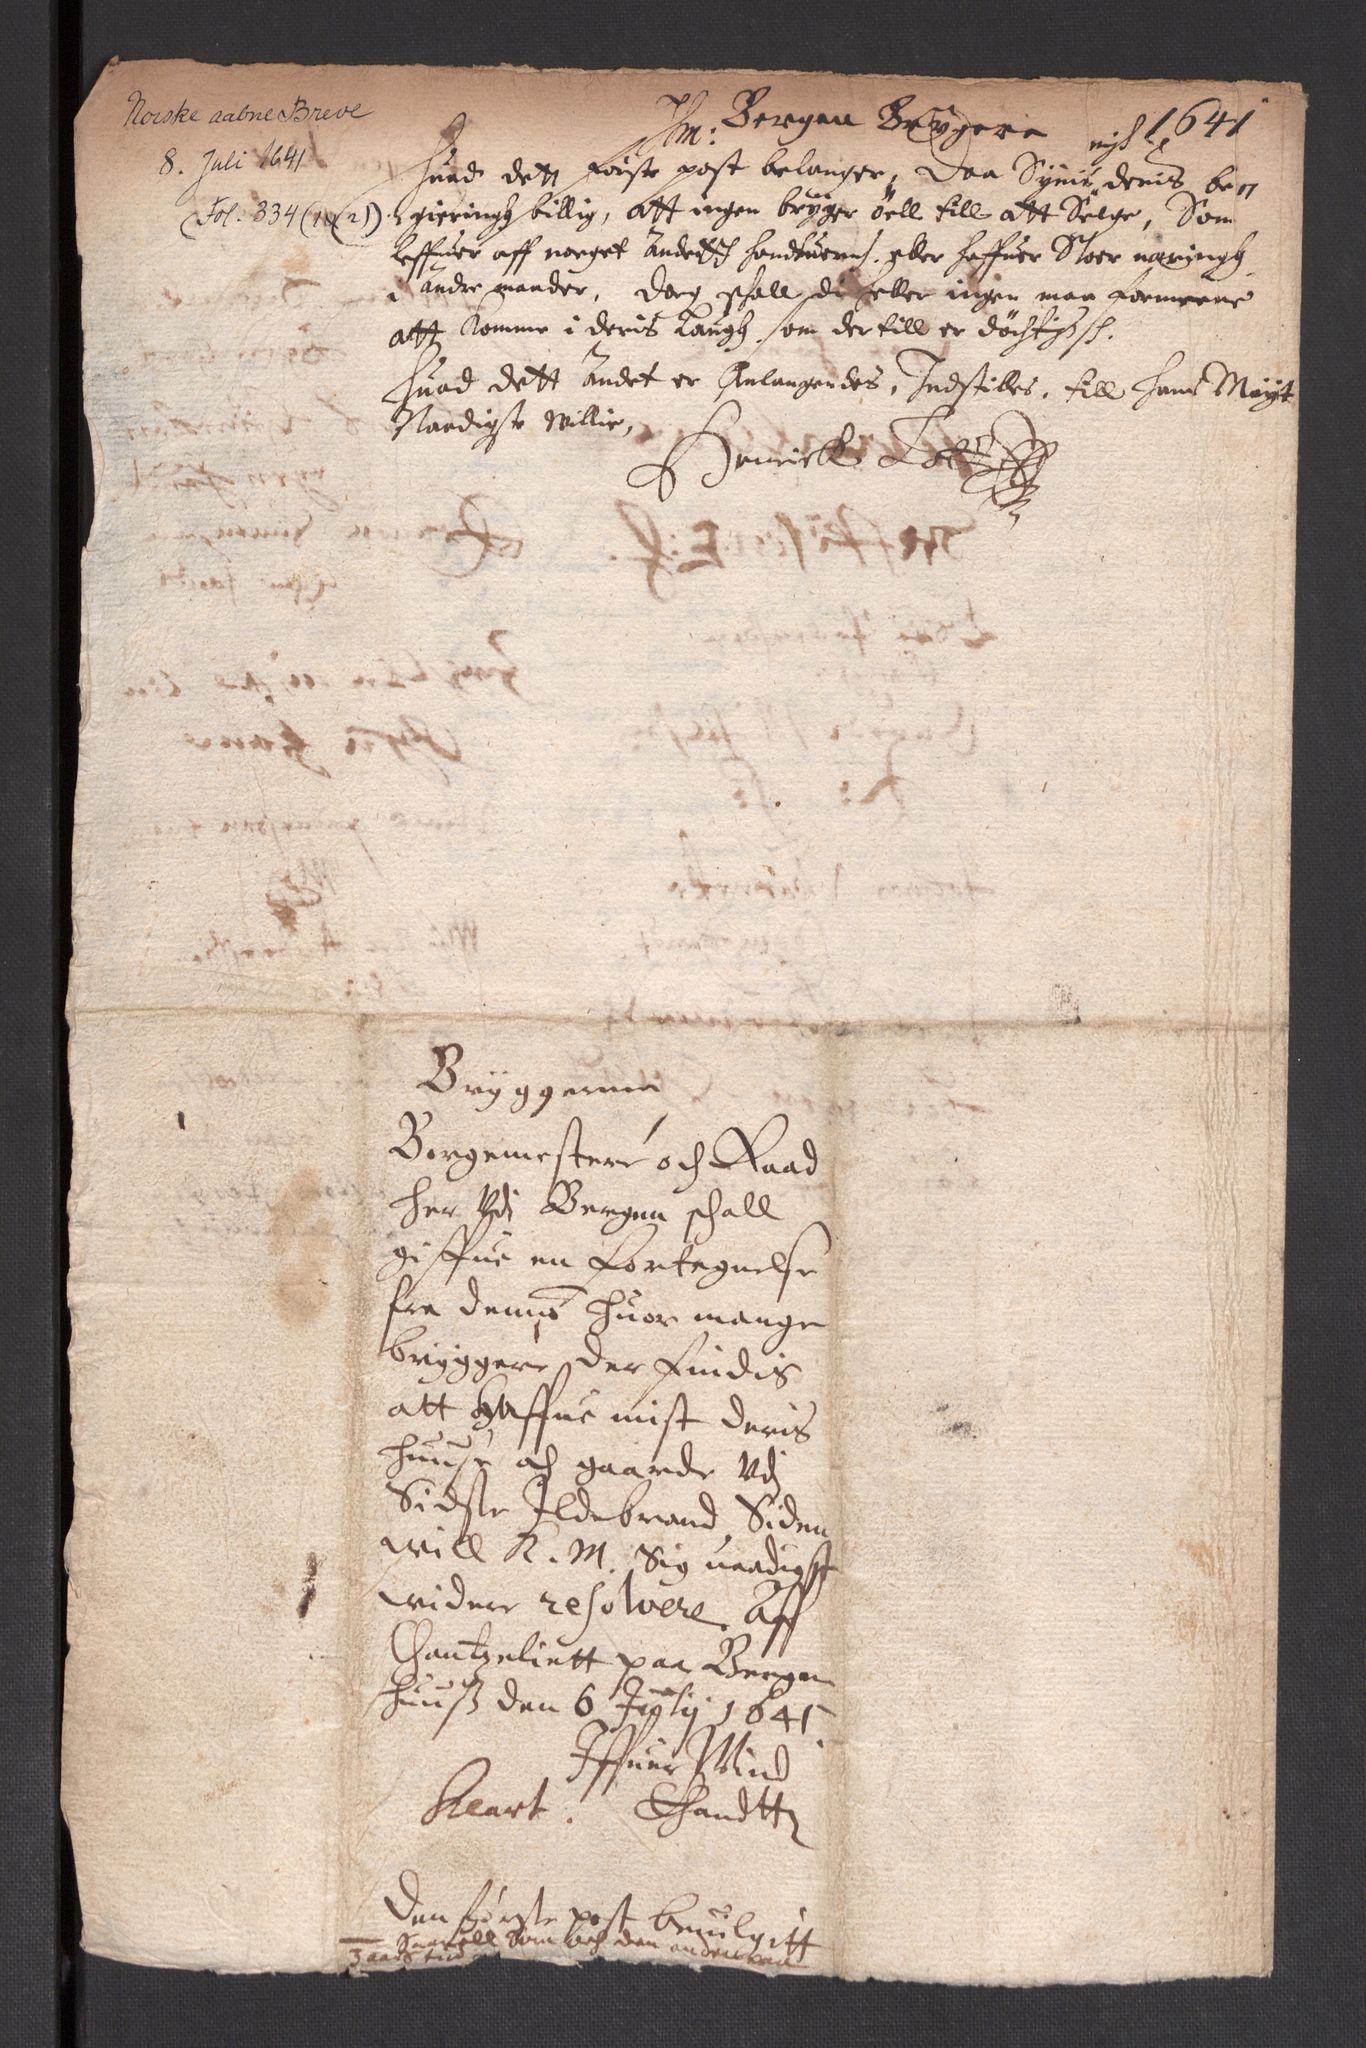 Norske aabne Breve
8. Juli 1641
(Fol. 334 (1) (2))
Bergen Brÿgere 1641
Huad dett første post belanger, Daa Synis migh deris be-
gieringh billig, att ingen brÿger öell till att Selge, Som
leffuer aff noeget andett handtuerch eller haffuer Stoer næringh
i andre maader, Dog schall di heller ingen maa formeene
att Komme i deris Laugh som dertill er döchtigh.
Huad dett Andet er Anlangendes, Indstilles till Hans Maÿt
Naadigste Willie,
Henrick
Brÿggerne
Borgemestere och Raad
her Vdi Bergen schall
giffue en Fortegnelse
fra dennem huor mange
brÿggere der findis
att Haffue mist deris
huuse och gaarde Vdi
Sidste Ildebrand, Siden
will K. M. Sig naadigst
widere resolvere. Aff
Cantzeliett paa Bergen
huuß den 6 Julij 1641
Iffuer Wind
Klart.
Den første post beuilgitt
3 aars tid Saauell Som och den anden